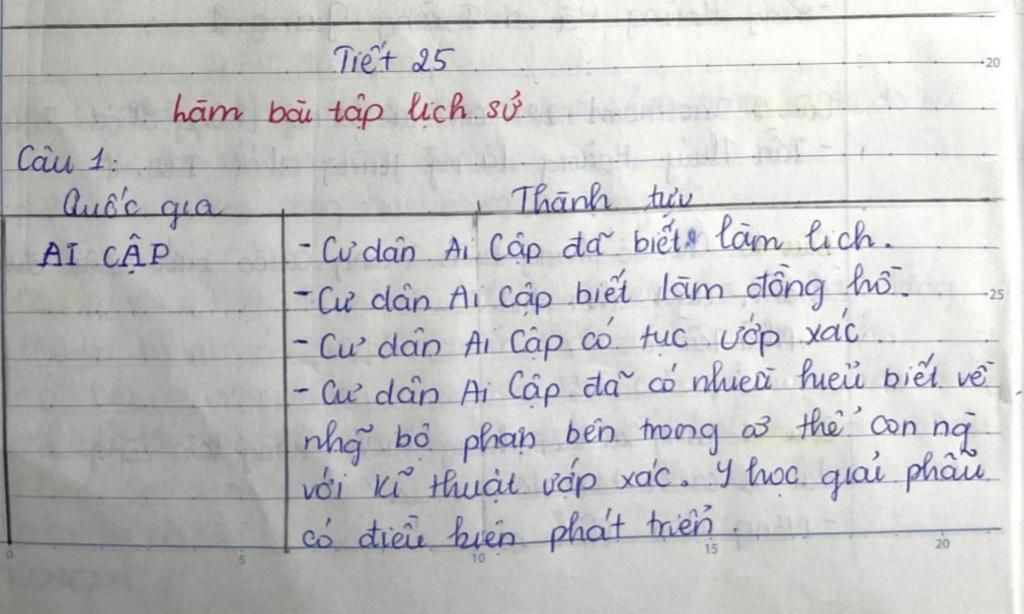 Tiết 25
hãm bài tập lịch sử
Câu 1:
Quốc gia Thành tựu
AI CẬP - Cư dân Ai Cập đã biết làm lịch.
- Cư dân Ai Cập biết làm đồng hồ.
- Cư dân Ai Cập có tục ướp xác
- Cư dân Ai Cập đã có nhiều hiểu biết về
nhg̃ bộ phận bên trong cơ thể con ng̀
với kĩ thuật ướp xác. Y học giải phẫu
có điều kiện phát triển
20
25
0 5 10 15 20